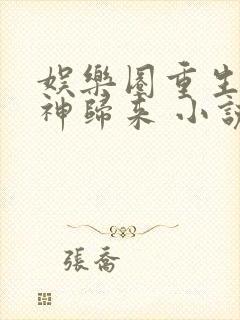 娛樂圈重生
神歸來 小說
張喬